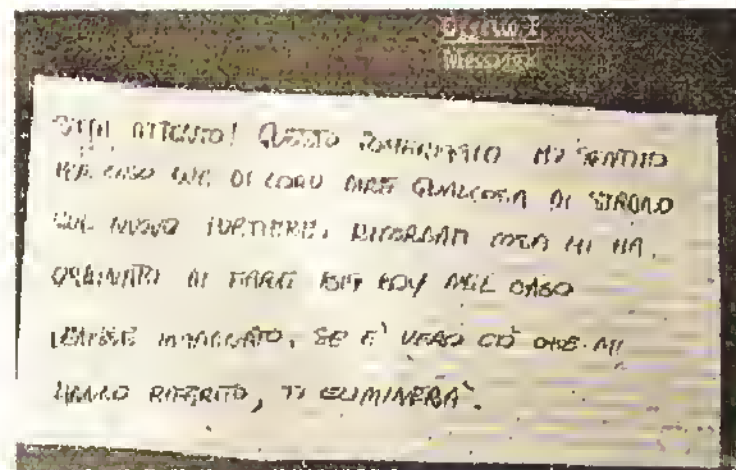 Oggetto:
Messaggio
STAI ATTENTO! QUESTO POMERIGGIO HO SENTITO
PER CASO UNO DI LORO DIRE QUALCOSA DI STRANO
SUL NUOVO PORTIERE. RICORDATI COSA MI HA
ORDINATO DI FARE BIG BOY NEL CASO
VENISSE INGANNATO. SE E' VERO CIÒ CHE MI
HANNO RIFERITO, TI ELIMINERÀ.